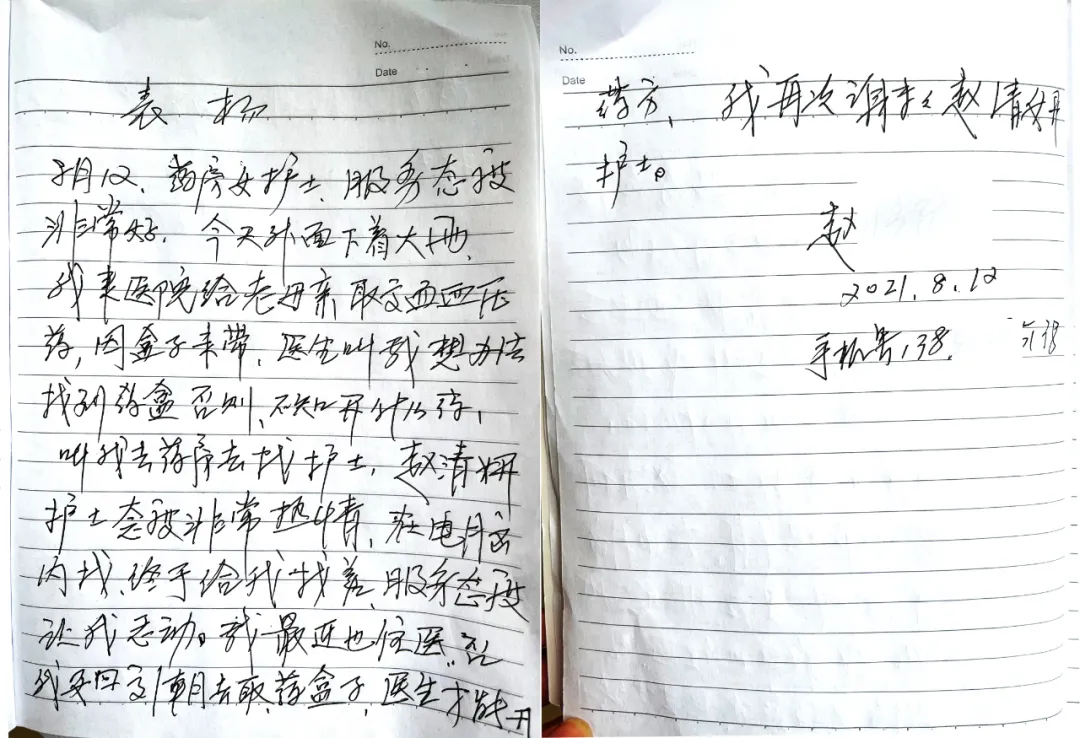 No.
Date
表扬
8月12、药房女护士、服务态度
非常好。今天外面下着大雨、
我来医院给老母亲取高血压
药,因盒子未带、医生叫我想办法
找到药盒否则、不知开什么药、
叫我去药房去找护士、赵清妍
护士态度非常热情、在电脑
内找、终于给我找着、服务态度
让我感动。我最近也住医
我要回去取药盒子、医生才能开
No.
Date
药方、我再次谢谢赵清妍
护士。
赵
2021.8.12
手机号:138.